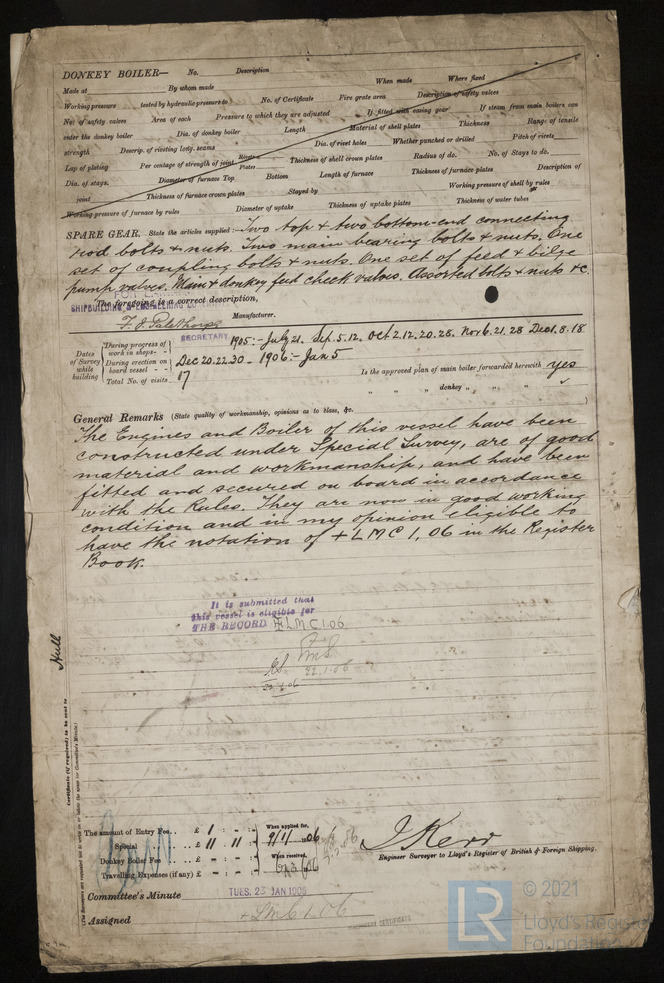 DONKEY BOILER— No. Description
Made at By whom made When made Where fixed
Working pressure tested by hydraulic pressure to No. of Certificate Fire grate area Description of safety valves
No. of safety valves Area of each Pressure to which they are adjusted If fitted with easing gear If steam from main boilers can
enter the donkey boiler Dia. of donkey boiler Length Material of shell plates Thickness Range of tensile
strength Descrip. of riveting long. seams Dia. of rivet holes Whether punched or drilled Pitch of rivets
Lap of plating Per centage of strength of joint Rivets Plates Thickness of shell crown plates Radius of do. No. of Stays to do.
Dia. of stays. Diameter of furnace Top Bottom Length of furnace Thickness of furnace plates Description of
joint Thickness of furnace crown plates Stayed by Working pressure of shell by rules
Working pressure of furnace by rules Diameter of uptake Thickness of uptake plates Thickness of water tubes
SPARE GEAR. State the articles supplied:— Two top & two bottom-end connecting
rod bolts & nuts. Two main bearing bolts & nuts. One
set of coupling bolts & nuts. One set of feed & bilge
pump valves. Main & donkey feed check valves. Assorted bolts & nuts &c.
The foregoing is a correct description,
SHIPBUILDING & ENGINEERING
F. J. Palethorpe Manufacturer.
SECRETARY
Dates of Survey while building
During progress of work in shops- - 1905:- July 21. Sep. 5. 12. Oct 2. 12. 20. 28. Nov 6. 21. 28 Dec 1. 8. 18
During erection on board vessel - - Dec 20. 22. 30 - 1906:- Jan 5
Total No. of visits 17
Is the approved plan of main boiler forwarded herewith yes
" " donkey " " "
General Remarks (State quality of workmanship, opinions as to class, &c.
The Engines and Boiler of this vessel have been
constructed under Special Survey, are of good
material and workmanship, and have been
fitted and secured on board in accordance
with the Rules. They are now in good working
condition and in my opinion eligible to
have the notation of +LMC 1,06 in the Register
Book.
It is submitted that
this vessel is eligible for
THE RECORD +LMC 1.06
22.1.06
22.1.06
Hull
Certificate (if required) to be sent to
The amount of Entry Fee.. £ 1 : - : -
Special £ 11 : 11 : -
Donkey Boiler Fee £ - : - : -
Travelling Expenses (if any) £ - : - : -
When applied for, 9/1/06
When received,
J Kerr
Engineer Surveyor to Lloyd's Register of British & Foreign Shipping.
Committee's Minute TUES. 23 JAN 1906
Assigned +LMC 1.06
LR © 2021
Lloyd's Register
Foundation